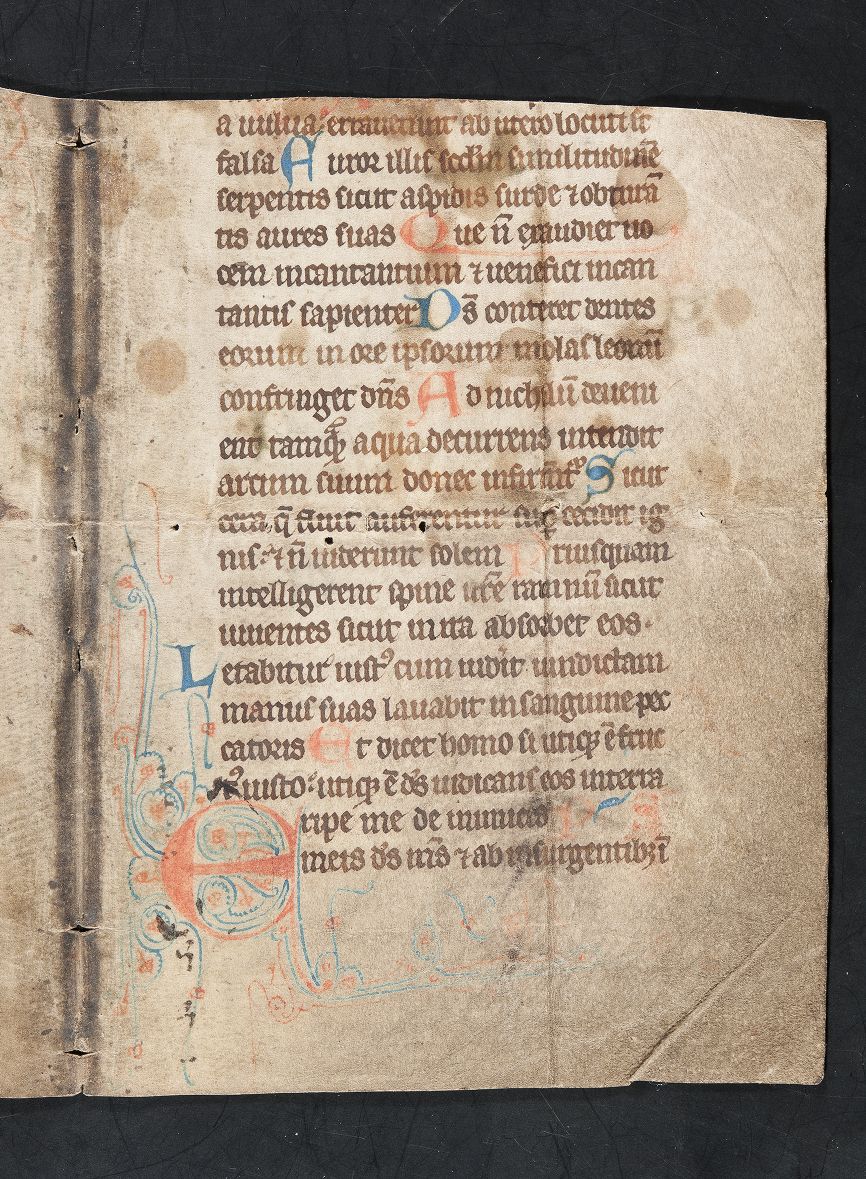 a uulua: errauerunt ab utero locuti st̄
falsa Auror illis scdm̄ similitudinē
serpentis sicut aspidis surde ⁊ obturā
tis aures suas Que n̄ exaudiet uo
cem incantantium ⁊ uenefici incan
tantis sapienter Ds̄ conteret dentes
eorum in ore ipsorum molas leonū
confringet dn̄s Ad nichilū deueni
ent tamqͣ aqua decurrens intendit
arcum suum donec Sicut
cera q̄ fluit auferentur suꝑ cecidit ig
nis: ⁊ n̄ uiderunt solem Priusquam
intelligerent spine ramnū sicut
uiuentes sicut in ira absorbet eos.
Letabitur iustꝰ cum uidīt uindictam
manus suas lauabit in sanguine pec
catoris Et dicet homo si utiqꝫ ē fruc
iusto: utiqꝫ ē ds̄ iudicans eos in terra
Eripe me de inimicis
meis ds̄ ms̄ ⁊ ab insurgentibꝫ ī